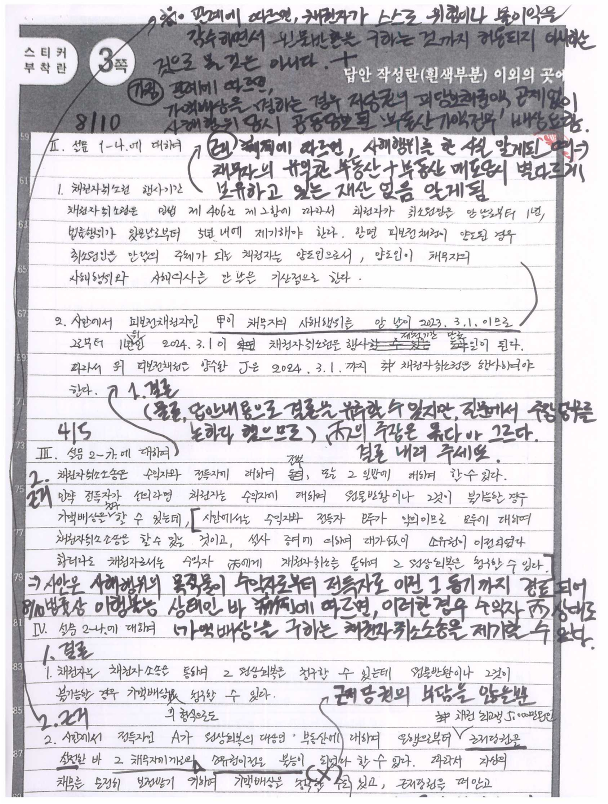 ※. 판례에 따르면, 채권자가 스스로 위험이나 불이익을
감수하면서 원물반환을 구하는 것까지 허용되지 아니하는
것으로 볼 것은 아니다. +
스티커
부착란
3쪽
답안 작성란(흰색부분) 이외의 곳에
판례에 따르면,
가액배상을 명하는 경우 저당권의 피담보채권액 공제없이
사해행위 당시 공동담보된 부동산 가액 전부 배상
8/10
Ⅱ. 설문 1-나.에 대하여
근거 에 따르면, 사해행위를 한 사실 알게된 때 →
채무자의 유일한 부동산 + 부동산 매도 당시 별다르게
보유하고 있는 재산 없음 알게됨
1. 채권자취소권 행사기간
채권자취소권은 민법 제406조 제2항에 따라서 채권자가 취소원인을 안 날로부터 1년,
법률행위가 있은 날로부터 5년 내에 제기해야 한다. 한편 피보전채권이 양도된 경우
취소원인을 안 날의 주체가 되는 채권자는 양도인으로서, 양도인이 채무자의
사해행위와 사해의사를 안 날을 기산점으로 한다.
2. 사안에서 피보전채권자인 甲이 채무자의 사해행위를 안 날이 2023. 3. 1. 이므로
그로부터 1년인 2024. 3. 1이 채권자취소권 행사 제척기간 만료일이 된다.
따라서 위 피보전채권을 양수한 J은 2024. 3. 1.까지 채권자취소권을 행사하여야
한다.
1. 결론
(물론, 답안내용으로 결론을 유추할 수 있지만, 질문에서 주장 당부를
논하라 했으므로) 丙의 주장은 옳다 or 그르다.
결론 내려 주세요.
4/5
Ⅲ. 설문 2-가.에 대하여
2. 근거
채권자취소소송은 수익자와 전득자에 대하여 전부, 또는 그 일방에 대하여 할 수 있다.
만약 전득자가 선의라면 채권자는 수익자에 대하여 원물반환이나 그것이 불가능한 경우
가액배상을 할 수 있는데, [사안에서는 수익자와 전득자 모두가 악의이므로 모두에 대하여
채권자취소소송을 할 수 있을 것이고, 설사 증여에 의하여 대가없이 소유권이 이전되었다
하더라도 채권자로서는 수익자 丙에게 채권자취소를 통하여 그 원상회복을 청구할 수 있다.]
→ 사안은 사해행위의 목적물이 수익자로부터 전득자로 이전 등기까지 경료되어
원물반환 이행불능 상태인 바 에 따르면, 이러한 경우 수익자 丙 상대로
'가액배상'을 구하는 채권자취소소송을 제기할 수 있다.
8/10
Ⅳ. 설문 2-나.에 대하여
1. 결론
1. 채권자는 채권자취소송을 통하여 그 원상회복을 청구할 수 있는데 원물반환이나 그것이
불가능한 경우 가액배상을 청구할 수 있다.
2. 근거
의 형식으로도
근저당권의 부담을 안은 부분
채권최고액 5,000만원인
2. 사안에서 전득자인 A가 원상회복의 대상인 부동산에 대하여 은행으로부터 근저당권을
설정한 바 그 채무자에게로의 소유권이전은 불능이 되었다 할 수 있다. 따라서 자신의
채권을 온전히 보전받기 위하여 가액배상을 청구할 수도 있고, 근저당권을 떠안고